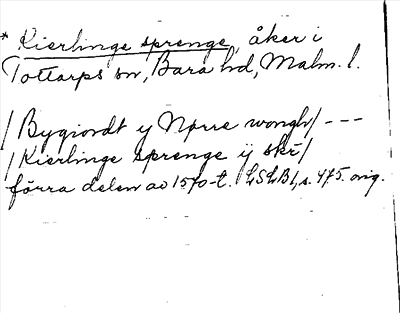 * Kierlinge sprenge, åker i
Tottarps sn, Bara hd, Malm. l.
/Bygiordt y Nørre wongh/ ---
/Kierlinge sprenge ij skr/
förra delen av 1570-t. LSLB1, s. 475. orig.